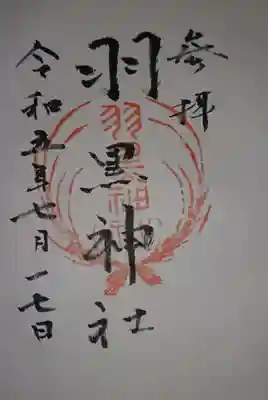 参拝
羽黒神社
令和五年七月一七日
羽黒神社